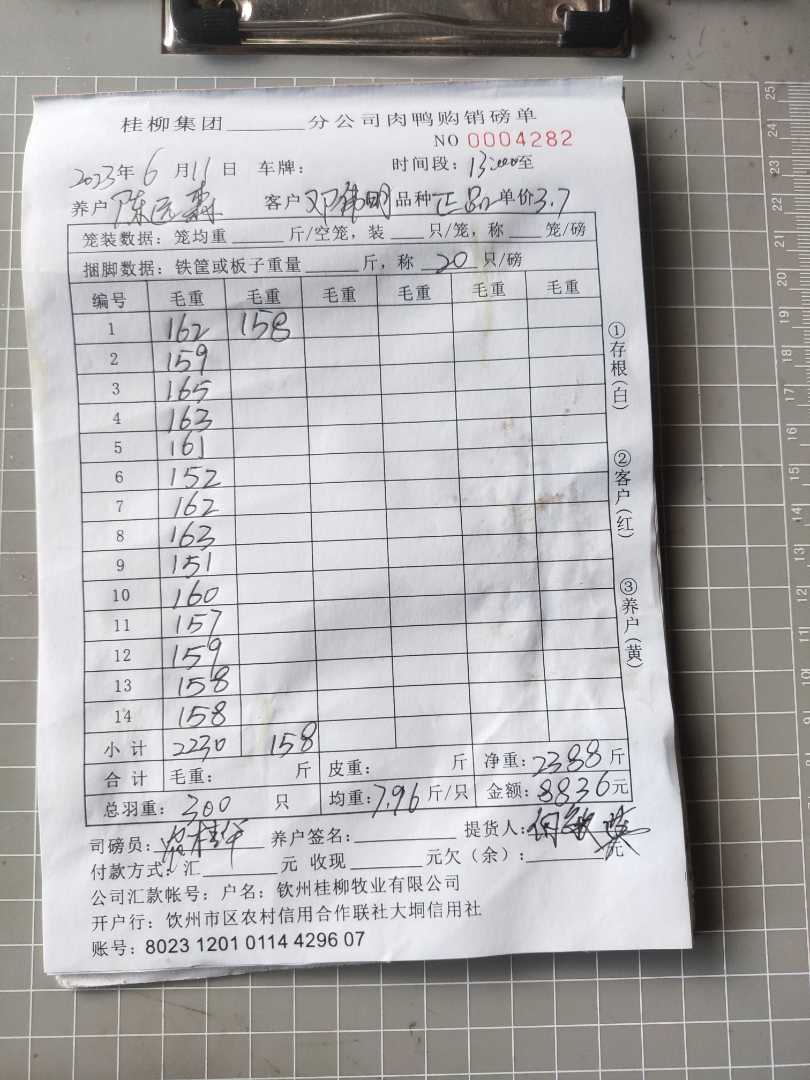 桂柳集团______分公司肉鸭购销磅单
NO 0004282
2023年6月11日 车牌： 时间段：13:00至
养户 陈 森 客户 邓伟明 品种 正品 单价3.7
笼装数据：笼均重____斤/空笼，装____只/笼，称____笼/磅
捆脚数据：铁筐或板子重量____斤，称 20 只/磅
编号 毛重 毛重 毛重 毛重 毛重 毛重
1 162 158
2 159
3 165
4 163
5 161
6 152
7 162
8 163
9 151
10 160
11 157
12 159
13 158
14 158
小计 2230 158
合计 毛重： 斤 皮重： 斤 净重：2388斤
总羽重：300 只 均重：7.96斤/只 金额：8836元
司磅员： 养户签名：________ 提货人：
付款方式：汇______元 收现______元欠（余）：______元
公司汇款帐号：户名：钦州桂柳牧业有限公司
开户行：钦州市区农村信用合作联社大垌信用社
账号：8023 1201 0114 4296 07
①存根(白)
②客户(红)
③养户(黄)
25
24
23
22
21
20
19
18
17
16
15
14
13
12
11
10